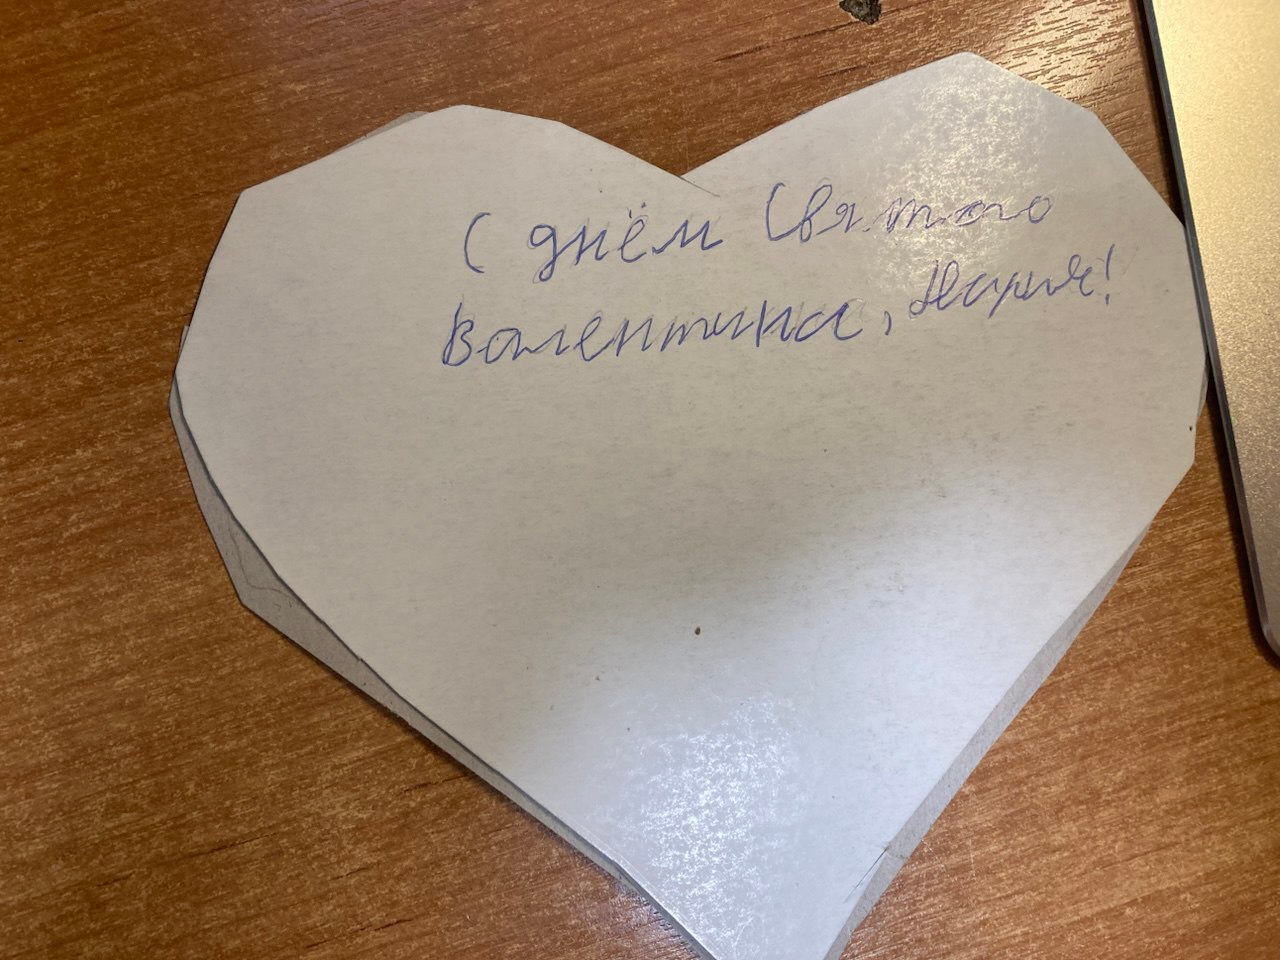 С днём Святого
Валентина, Дарья!